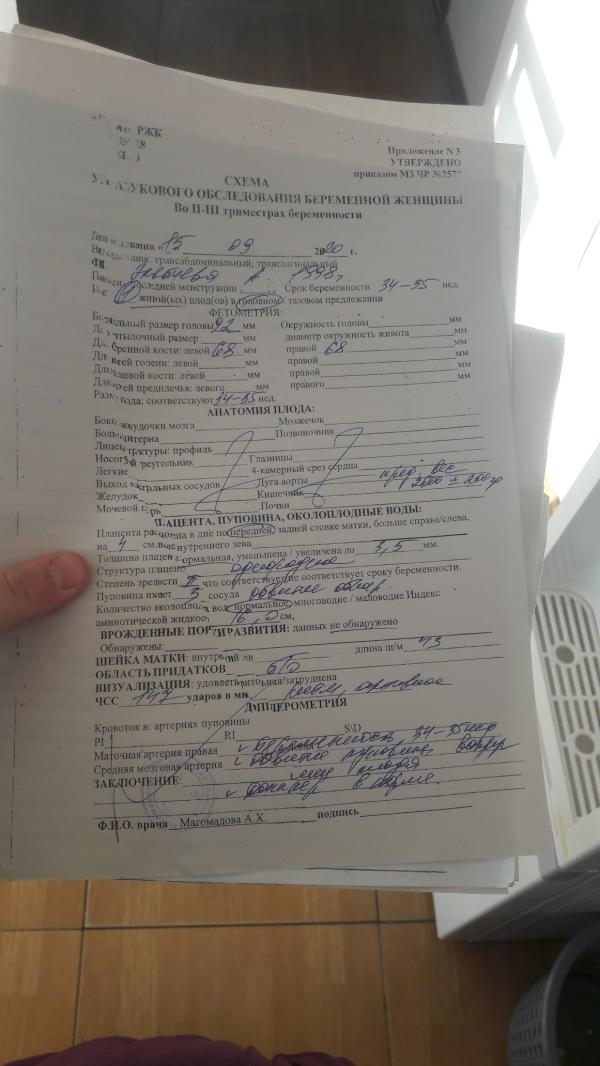 РЖК
Приложение N 3
УТВЕРЖДЕНО
приказом МЗ ЧР №257"
СХЕМА
ОБСЛЕДОВАНИЯ БЕРЕМЕННОЙ ЖЕНЩИНЫ
Во II-III триместрах беременности
"15 09 2020 г.
трансабдоминальный, трансвагинальный
1998г.
последней менструации Срок беременности 34-35 нед.
живой(ых) плод(ов) в головном/ тазовом предлежании
ФЕТОМЕТРИЯ:
размер головы 92 мм Окружность головы мм
размер мм диаметр окружность живота мм
бедренной кости: левой 68 мм правой 68 мм
голени: левой мм правой мм
кости: левой мм правой мм
предплечья: левого мм правого мм
плода: соответствуют 34-35 нед.
АНАТОМИЯ ПЛОДА:
желудочки мозга Мозжечок
цистерна Позвоночник
структуры: профиль
треугольник Глазницы
Легкие 4-камерный срез сердца
Выход магистральных сосудов Дуга аорты пред. вес
Желудок Кишечник 2600 ± 200 гр
Мочевой Почки
ПЛАЦЕНТА, ПУПОВИНА, ОКОЛОПЛОДНЫЕ ВОДЫ:
Плацента в дне по передней, задней стенке матки, больше справа/слева,
на 4 см. внутреннего зева
Толщина нормальная, уменьшена / увеличена до 3,5 мм.
Структура плаценты однородная
Степень зрелости II что соответствует/не соответствует сроку беременности.
Пуповина имеет 3 сосуда обвитие
Количество вод: нормальное, многоводие / маловодие Индекс
амниотической жидкости 16,0 см,
ВРОЖДЕННЫЕ ПОРОКИ РАЗВИТИЯ: данных не обнаружено
Обнаружены:
ШЕЙКА МАТКИ: внутренний зев длина ш/м 43
ОБЛАСТЬ ПРИДАТКОВ б/о
ВИЗУАЛИЗАЦИЯ: удовлетворительная/затруднена
ЧСС 147 ударов в мин ритм,
ДОППЛЕРОМЕТРИЯ
Кровоток в: артериях пуповины
PI RI S\D
Маточная артерия правая левая беременность 34-35 нед
Средняя мозговая артерия обвитие пуповины вокруг
ЗАКЛЮЧЕНИЕ: шеи плода
доплер в норме.
Ф.И.О. врача Магомадова А.Х. подпись